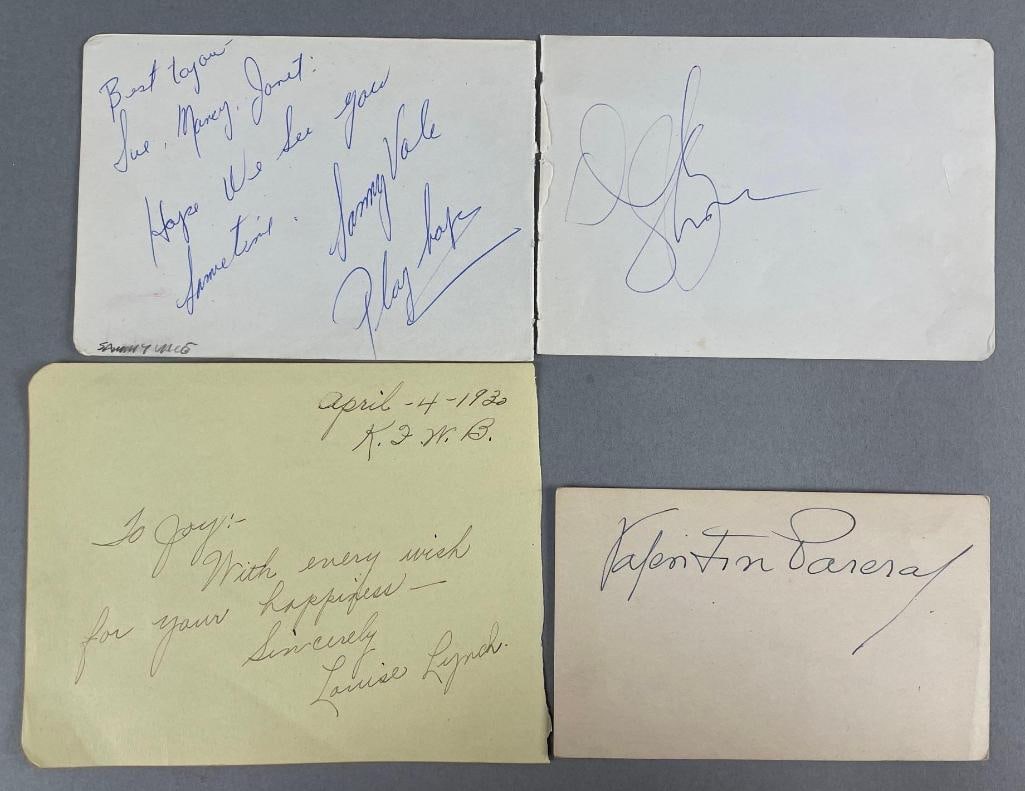 Best to you
Sue, Nancy, Janet:
Hope We See you
Sometime.
Sammy Vale
Play
SAMMY VALE
April-4-1930
K.F.W.B.
To Joy:-
With every wish
for your happiness-
Sincerely
Louise Lynch.
Valentin Parera